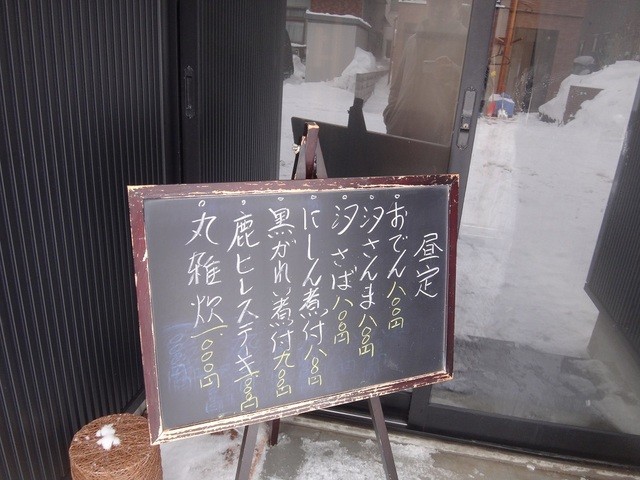 昼定
おでん 八〇〇円
汐さんま 八〇〇円
汐さば 八〇〇円
にしん煮付 八〇〇円
黒がれい煮付 九〇〇円
鹿ヒレステーキ 一、〇〇〇円
丸雑炊 一、〇〇〇円